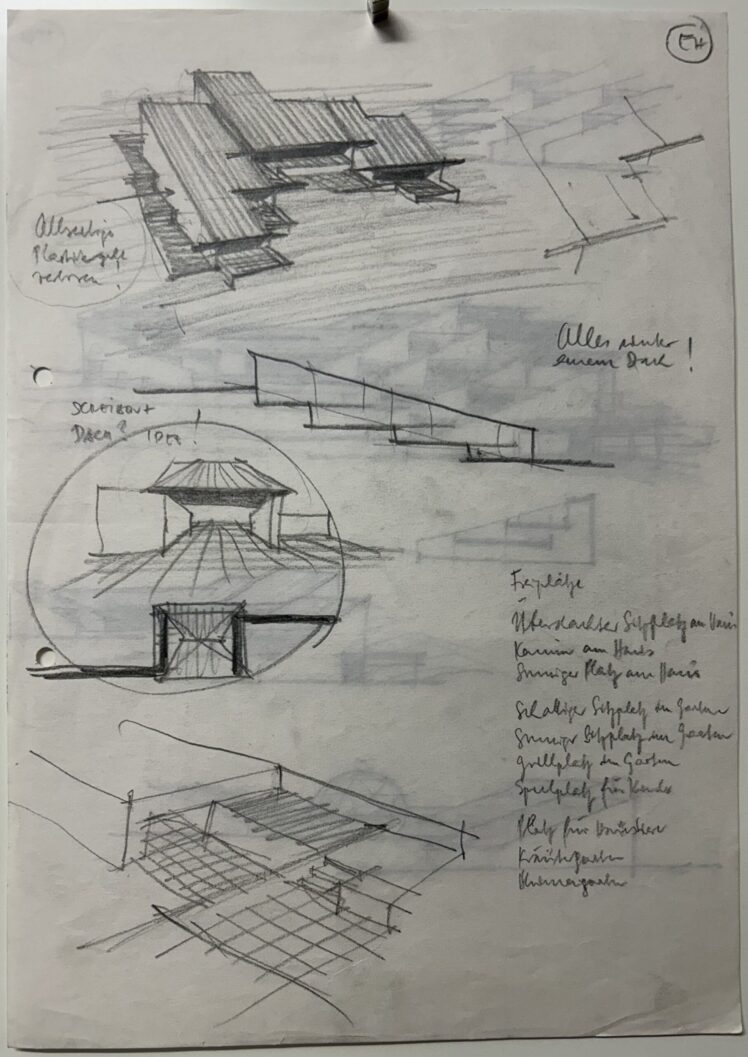 EH
Allseitige
verloren!
Alles unter
einem Dach!
DACH? IDEE!
Freiplätze
Überdachter Sitzplatz am Haus
Kamin am Haus
Sonniger Platz am Haus
Schattiger Sitzplatz im Garten
Sonniger Sitzplatz im Garten
Grillplatz im Garten
Spielplatz für Kinder
Platz für Haustiere
Kräutergarten
Blumengarten